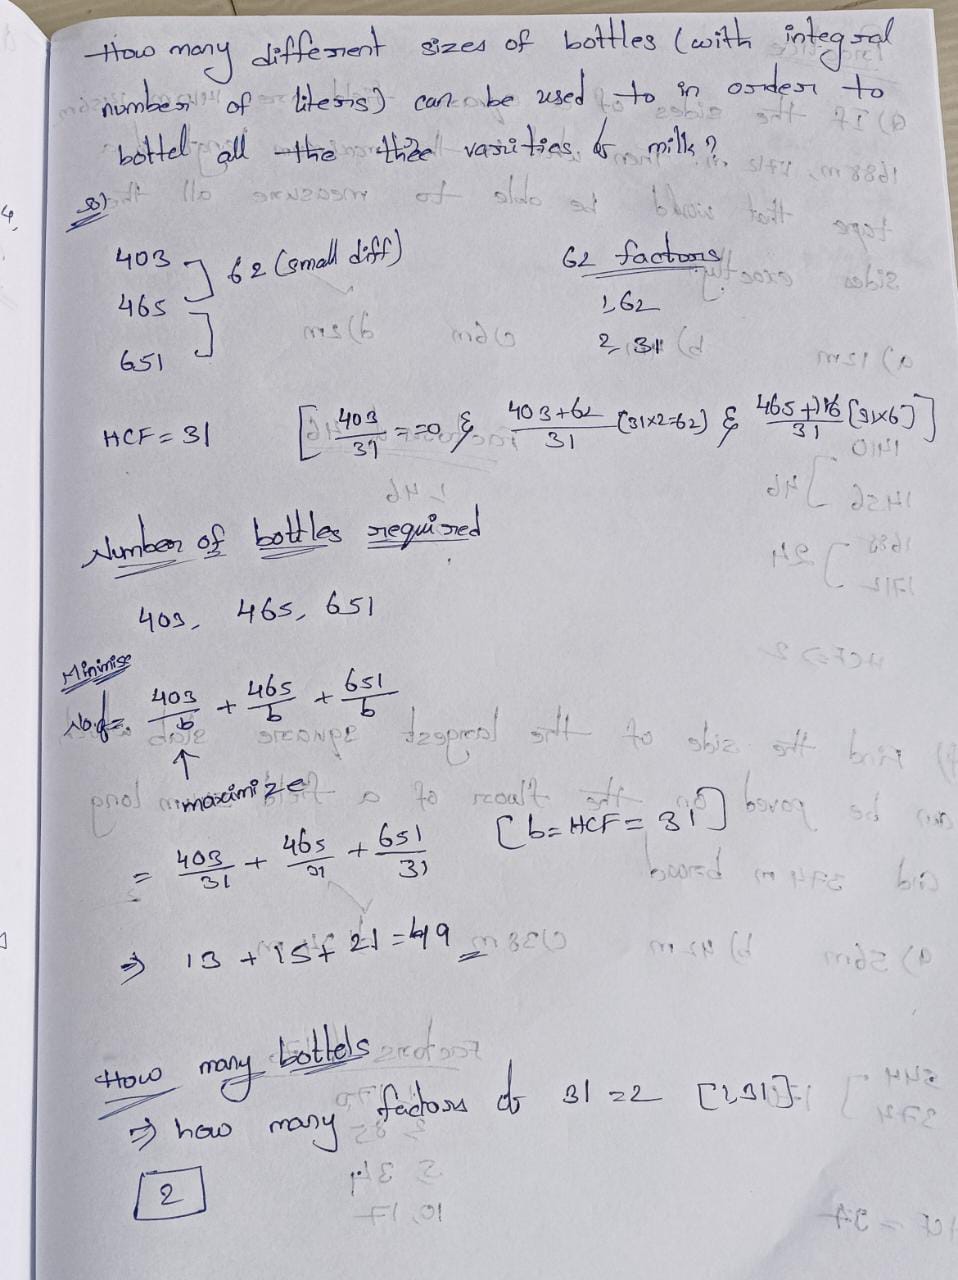 How many different sizes of bottles (with integral
number of liters) can be used to in order to
bottel all the thee varities of milk?
s)
403
465
651
62 (small diff)
62 factors
1,62
2,31
HCF = 31 [ 403/31 = 0 & 403+62/31 [31x2=62) & 465+186/31 [31x6] ]
Number of bottles required
403, 465, 651
Minimise
No.of = 403/b + 465/b + 651/b
↑
maximize
= 403/31 + 465/31 + 651/31 [b = HCF = 31]
⇒ 13 + 15 + 21 = 49
How many bottels
⇒ how many factors of 31 = 2 [1,31]
2